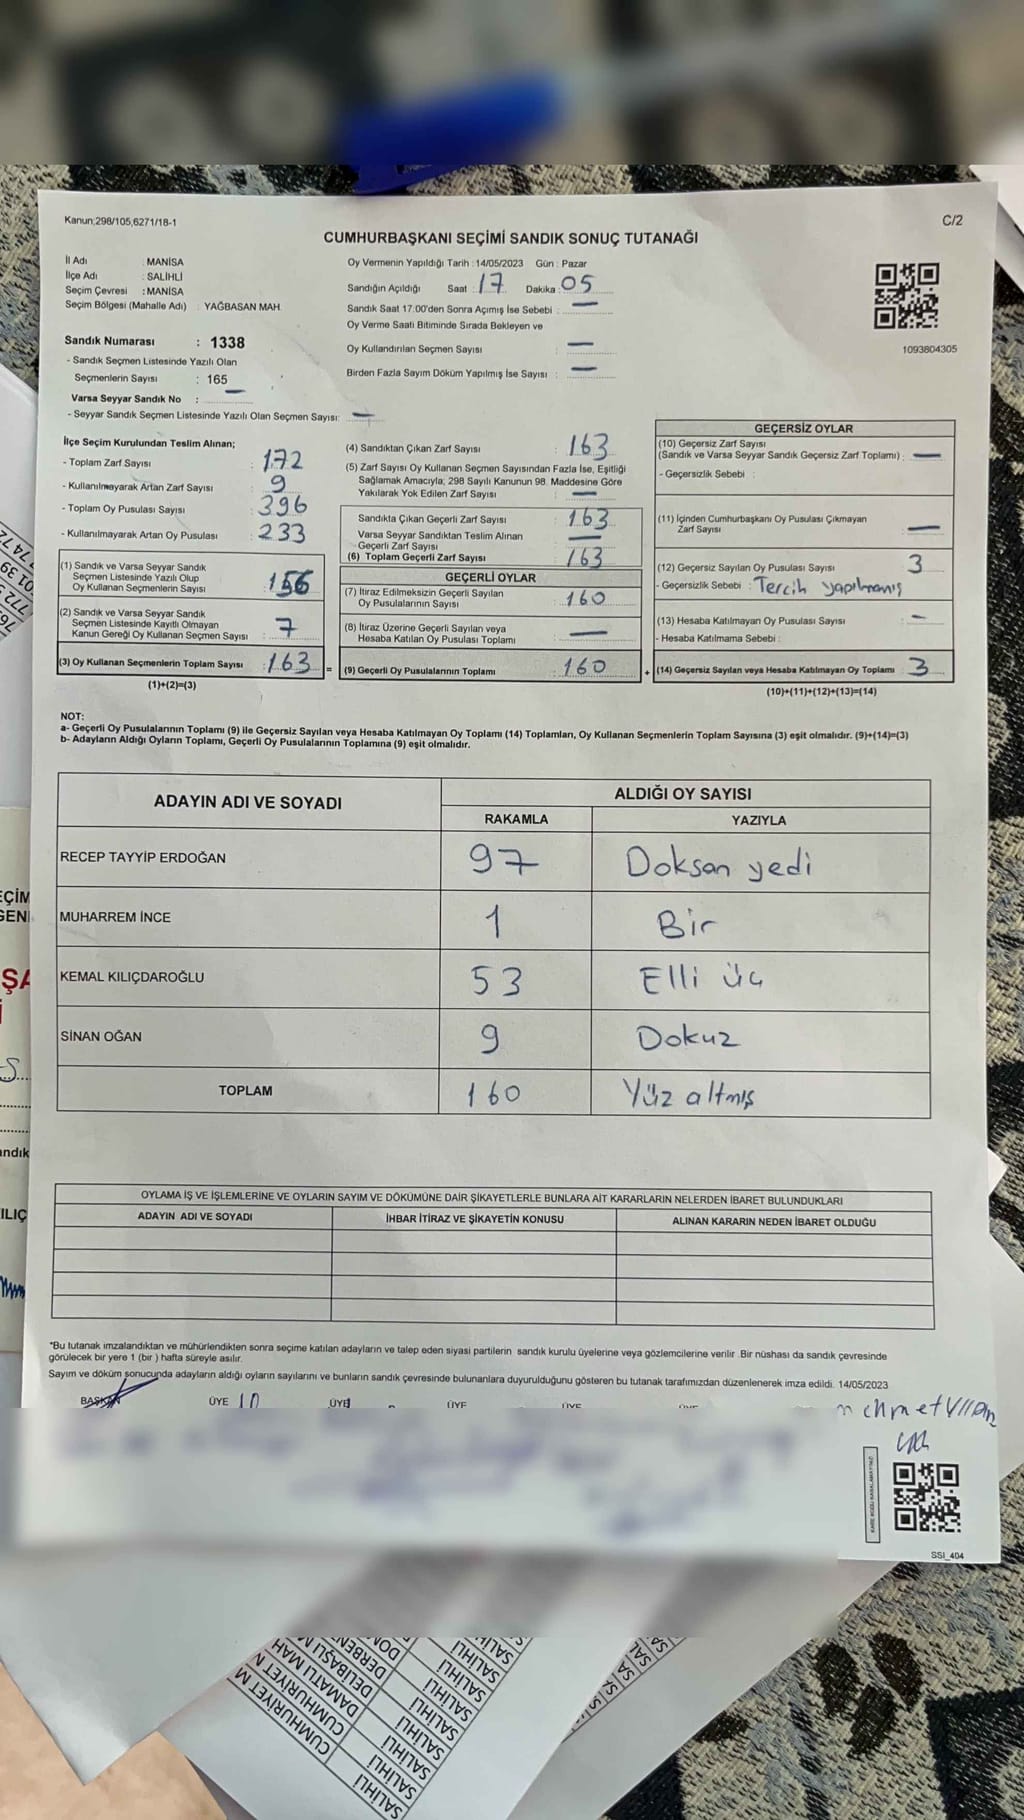 Kanun;298/105,6271/18-1
C/2
CUMHURBAŞKANI SEÇİMİ SANDIK SONUÇ TUTANAĞI
İl Adı : MANİSA
İlçe Adı : SALİHLİ
Seçim Çevresi : MANİSA
Seçim Bölgesi (Mahalle Adı) : YAĞBASAN MAH.
Sandık Numarası : 1338
- Sandık Seçmen Listesinde Yazılı Olan
Seçmenlerin Sayısı : 165
Varsa Seyyar Sandık No : —
- Seyyar Sandık Seçmen Listesinde Yazılı Olan Seçmen Sayısı: —
Oy Vermenin Yapıldığı Tarih : 14/05/2023 Gün : Pazar
Sandığın Açıldığı Saat : 17 Dakika : 05
Sandık Saat 17:00'den Sonra Açımış İse Sebebi : —
Oy Verme Saati Bitiminde Sırada Bekleyen ve
Oy Kullandırılan Seçmen Sayısı : —
Birden Fazla Sayım Döküm Yapılmış İse Sayısı : —
1093804305
İlçe Seçim Kurulundan Teslim Alınan;
- Toplam Zarf Sayısı : 172
- Kullanılmayarak Artan Zarf Sayısı : 9
- Toplam Oy Pusulası Sayısı : 396
- Kullanılmayarak Artan Oy Pusulası : 233
(1) Sandık ve Varsa Seyyar Sandık
Seçmen Listesinde Yazılı Olup
Oy Kullanan Seçmenlerin Sayısı : 156
(2) Sandık ve Varsa Seyyar Sandık
Seçmen Listesinde Kayıtlı Olmayan
Kanun Gereği Oy Kullanan Seçmen Sayısı : 7
(3) Oy Kullanan Seçmenlerin Toplam Sayısı : 163 =
(1)+(2)=(3)
(4) Sandıktan Çıkan Zarf Sayısı : 163
(5) Zarf Sayısı Oy Kullanan Seçmen Sayısından Fazla İse, Eşitliği
Sağlamak Amacıyla; 298 Sayılı Kanunun 98. Maddesine Göre
Yakılarak Yok Edilen Zarf Sayısı : —
Sandıkta Çıkan Geçerli Zarf Sayısı : 163
Varsa Seyyar Sandıktan Teslim Alınan
Geçerli Zarf Sayısı : —
(6) Toplam Geçerli Zarf Sayısı : 163
GEÇERLİ OYLAR
(7) İtiraz Edilmeksizin Geçerli Sayılan
Oy Pusulalarının Sayısı : 160
(8) İtiraz Üzerine Geçerli Sayılan veya
Hesaba Katılan Oy Pusulası Toplamı : —
(9) Geçerli Oy Pusulalarının Toplamı : 160 +
GEÇERSİZ OYLAR
(10) Geçersiz Zarf Sayısı
(Sandık ve Varsa Seyyar Sandık Geçersiz Zarf Toplamı) : —
- Geçersizlik Sebebi :
(11) İçinden Cumhurbaşkanı Oy Pusulası Çıkmayan
Zarf Sayısı : —
(12) Geçersiz Sayılan Oy Pusulası Sayısı : 3
- Geçersizlik Sebebi : Tercih yapılmamış
(13) Hesaba Katılmayan Oy Pusulası Sayısı : —
- Hesaba Katılmama Sebebi :
(14) Geçersiz Sayılan veya Hesaba Katılmayan Oy Toplamı : 3
(10)+(11)+(12)+(13)=(14)
NOT:
a- Geçerli Oy Pusulalarının Toplamı (9) ile Geçersiz Sayılan veya Hesaba Katılmayan Oy Toplamı (14) Toplamları, Oy Kullanan Seçmenlerin Toplam Sayısına (3) eşit olmalıdır. (9)+(14)=(3)
b- Adayların Aldığı Oyların Toplamı, Geçerli Oy Pusulalarının Toplamına (9) eşit olmalıdır.
ADAYIN ADI VE SOYADI ALDIĞI OY SAYISI
RAKAMLA YAZIYLA
RECEP TAYYİP ERDOĞAN 97 Doksan yedi
MUHARREM İNCE 1 Bir
KEMAL KILIÇDAROĞLU 53 Elli üç
SİNAN OĞAN 9 Dokuz
TOPLAM 160 Yüz altmış
OYLAMA İŞ VE İŞLEMLERİNE VE OYLARIN SAYIM VE DÖKÜMÜNE DAİR ŞİKAYETLERLE BUNLARA AİT KARARLARIN NELERDEN İBARET BULUNDUKLARI
ADAYIN ADI VE SOYADI İHBAR İTİRAZ VE ŞİKAYETİN KONUSU ALINAN KARARIN NEDEN İBARET OLDUĞU
*Bu tutanak imzalandıktan ve mühürlendikten sonra seçime katılan adayların ve talep eden siyasi partilerin sandık kurulu üyelerine veya gözlemcilerine verilir .Bir nüshası da sandık çevresinde
görülecek bir yere 1 (bir ) hafta süreyle asılır.
Sayım ve döküm sonucunda adayların aldığı oyların sayılarını ve bunların sandık çevresinde bulunanlara duyurulduğunu gösteren bu tutanak tarafımızdan düzenlenerek imza edildi. 14/05/2023
BAŞKAN ÜYE ÜYE ÜYE ÜYE
SSI_404
CUMHURİYET M
CUMHURİYET
DAMATLI MAH
DELİBAŞLI
DERBEN
SALİHLİ
SALİHLİ
SALİHLİ
SALİHLİ
SALİHLİ
SALİHLİ